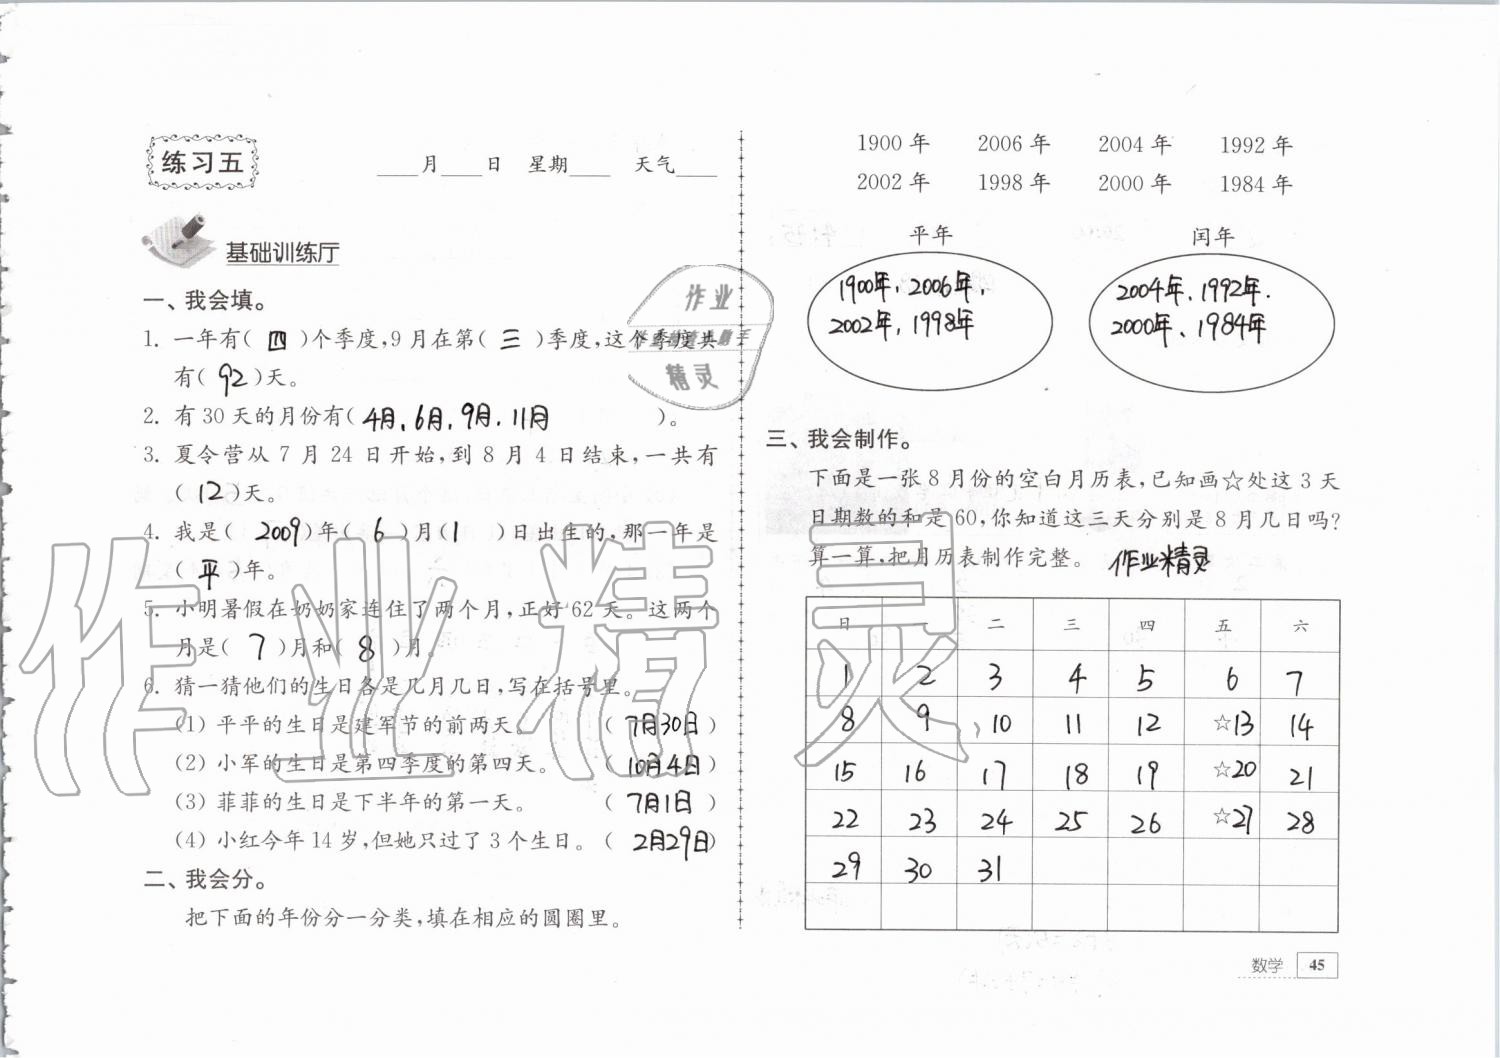 练习五
____月____日 星期____ 天气____
基础训练厅
一、我会填。
1. 一年有( 四 )个季度,9月在第( 三 )季度,这个季度共
有( 92 )天。
2. 有30天的月份有( 4月,6月,9月,11月 )。
3. 夏令营从7月24日开始,到8月4日结束,一共有
( 12 )天。
4. 我是( 2009 )年( 6 )月( 1 )日出生的,那一年是
( 平 )年。
5. 小明暑假在奶奶家连住了两个月,正好62天。这两个
月是( 7 )月和( 8 )月。
6. 猜一猜他们的生日各是几月几日,写在括号里。
(1) 平平的生日是建军节的前两天。 ( 7月30日 )
(2) 小军的生日是第四季度的第四天。 ( 10月4日 )
(3) 菲菲的生日是下半年的第一天。 ( 7月1日 )
(4) 小红今年14岁,但她只过了3个生日。 ( 2月29日 )
二、我会分。
把下面的年份分一分类,填在相应的圆圈里。
1900年 2006年 2004年 1992年
2002年 1998年 2000年 1984年
平年 闰年
1900年,2006年,
2002年,1998年
2004年、1992年.
2000年、1984年
三、我会制作。
下面是一张8月份的空白月历表,已知画☆处这3天
日期数的和是60,你知道这三天分别是8月几日吗?
算一算,把月历表制作完整。 作业精灵
日 一 二 三 四 五 六
1 2 3 4 5 6 7
8 9 10 11 12 ☆13 14
15 16 17 18 19 ☆20 21
22 23 24 25 26 ☆27 28
29 30 31
数学 45
作业
精灵
作业精灵